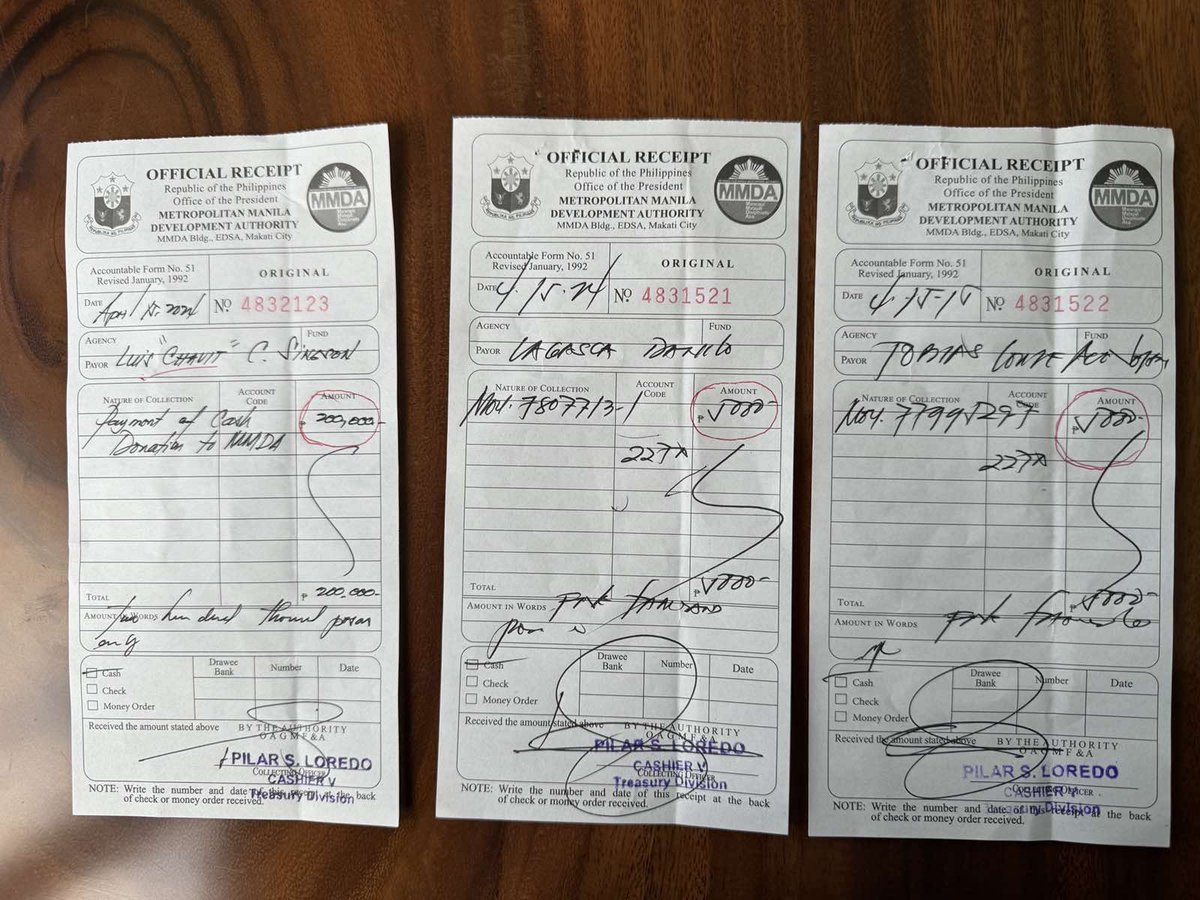 OFFICIAL RECEIPT
Republic of the Philippines
Office of the President
METROPOLITAN MANILA
DEVELOPMENT AUTHORITY
MMDA Bldg., EDSA, Makati City
MMDA
Accountable Form No. 51
Revised January, 1992
ORIGINAL
DATE April 15, 2024
Nº 4832123
AGENCY
FUND
PAYOR LUIS "CHAVIT" C. SINGSON
NATURE OF COLLECTION
ACCOUNT CODE
AMOUNT
Payment of Cash
₱ 200,000-
Donation to MMDA
TOTAL ₱ 200,000-
AMOUNT IN WORDS Two hundred thousand pesos
only
Cash
Check
Money Order
Drawee Bank
Number
Date
Received the amount stated above
BY THE AUTHORITY
OAGMF&A
PILAR S. LOREDO
CASHIER V
Collecting Officer
Treasury Division
NOTE: Write the number and date of this receipt at the back
of check or money order received.
OFFICIAL RECEIPT
Republic of the Philippines
Office of the President
METROPOLITAN MANILA
DEVELOPMENT AUTHORITY
MMDA Bldg., EDSA, Makati City
MMDA
Accountable Form No. 51
Revised January, 1992
ORIGINAL
DATE 4.15.24
Nº 4831521
AGENCY
FUND
PAYOR LAGASCA DANILO
NATURE OF COLLECTION
ACCOUNT CODE
AMOUNT
7807713-1
₱ 5000-
TOTAL ₱ 5000-
AMOUNT IN WORDS
Cash
Check
Money Order
Drawee Bank
Number
Date
Received the amount stated above
BY THE AUTHORITY
OAGMF&A
PILAR S. LOREDO
CASHIER V
Collecting Officer
Treasury Division
NOTE: Write the number and date of this receipt at the back
of check or money order received.
OFFICIAL RECEIPT
Republic of the Philippines
Office of the President
METROPOLITAN MANILA
DEVELOPMENT AUTHORITY
MMDA Bldg., EDSA, Makati City
MMDA
Accountable Form No. 51
Revised January, 1992
ORIGINAL
DATE
Nº 4831522
AGENCY
FUND
PAYOR TOBIAS
NATURE OF COLLECTION
ACCOUNT CODE
AMOUNT
₱ 5000-
TOTAL ₱ 5000-
AMOUNT IN WORDS
Cash
Check
Money Order
Drawee Bank
Number
Date
Received the amount stated above
BY THE AUTHORITY
OAGMF&A
PILAR S. LOREDO
CASHIER V
Collecting Officer
Treasury Division
NOTE: Write the number and date of this receipt at the back
of check or money order received.